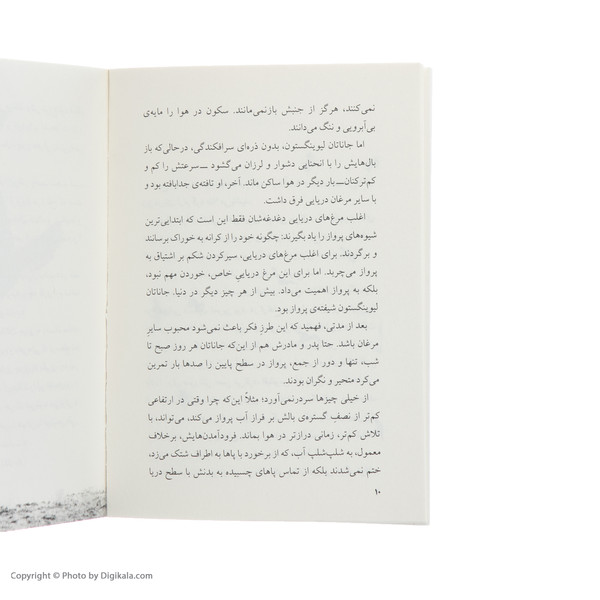 نمی‌کنند، هرگز از جنبش بازنمی‌مانند. سکون در هوا را مایه‌ی
بی‌آبرویی و ننگ می‌دانند.
اما جاناتان لیوینگستون، بدون ذره‌ای سرافکندگی، درحالی‌که باز
بال‌هایش را با انحنایی دشوار و لرزان می‌گشود ــ سرعتش را کم و
کم‌تر‌کنان ــ بار دیگر در هوا ساکن ماند. آخر، او تافته‌ی جدابافته بود و
با سایر مرغان دریایی فرق داشت.
اغلب مرغ‌های دریایی دغدغه‌شان فقط این است که ابتدایی‌ترین
شیوه‌های پرواز را یاد بگیرند: چگونه خود را از کرانه به خوراک برسانند
و برگردند. برای اغلب مرغ‌های دریایی، سیرکردن شکم بر اشتیاق به
پرواز می‌چربد. اما برای این مرغ دریاییِ خاص، خوردن مهم نبود،
بلکه به پرواز اهمیت می‌داد. بیش از هر چیز دیگر در دنیا. جاناتان
لیوینگستون شیفته‌ی پرواز بود.
بعد از مدتی، فهمید که این طرز فکر باعث نمی‌شود محبوب سایر
مرغان باشد. حتا پدر و مادرش هم از این‌که جاناتان هر روز صبح تا
شب، تنها و دور از جمع، پرواز در سطح پایین را صدها بار تمرین
می‌کرد متحیر و نگران بودند.
از خیلی چیزها سردرنمی‌آورد؛ مثلاً این‌که چرا وقتی در ارتفاعی
کم‌تر از نصفِ گستره‌ی بالش بر فراز آب پرواز می‌کند، می‌تواند، با
تلاش کم‌تر، زمانی درازتر در هوا بماند. فرودآمدن‌هایش، برخلاف
معمول، به شلپ‌شلپ آب، که از برخورد با پاها به اطراف شتک می‌زد،
ختم نمی‌شدند بلکه از تماس پاهای چسبیده به بدنش با سطح دریا
۱۰
Copyright © Photo by Digikala.com